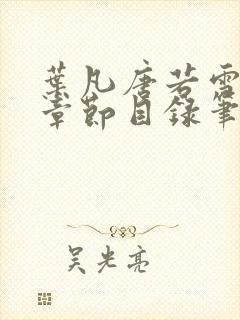 葉凡唐若雪
章節目錄筆
吴光亮